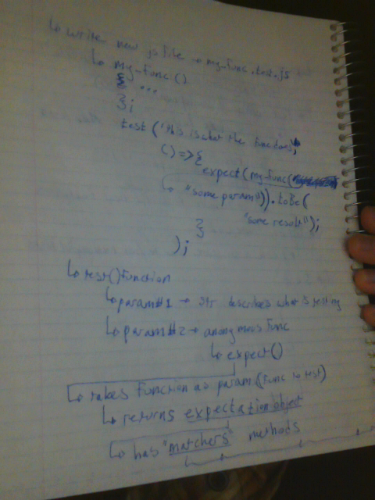 ↳ writer new js file → my-func.test.js
↳ my-func()
{ ...
};
test('This is what the function',
() => {
expect(my-func(
↳ "some param")).toBe(
"some result");
}
);
↳ test() function
↳ param#1 → str describes what is testing
↳ param#2 → anonymous func
↳ expect()
↳ takes function as param (func to test)
↳ returns expectation object
↳ has "matchers" methods